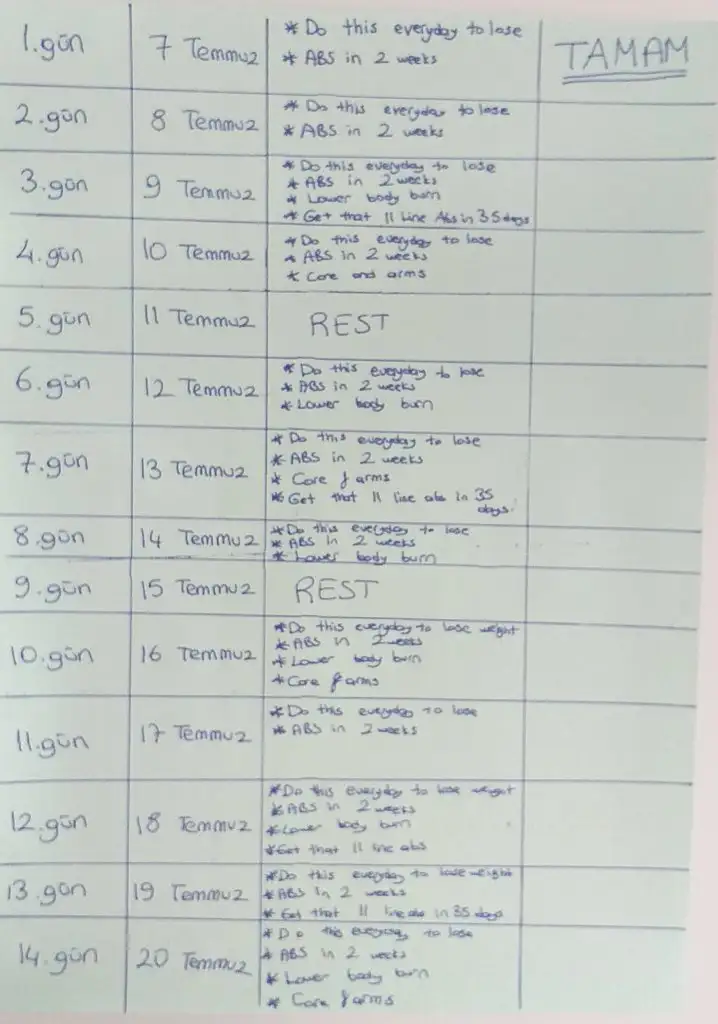 1.gün 7 Temmuz * Do this everyday to lose TAMAM
* ABS in 2 weeks
2.gün 8 Temmuz * Do this everyday to lose
* ABS in 2 weeks
3.gün 9 Temmuz * Do this everyday to lose
* ABS in 2 weeks
* Lower body burn
* Get that 11 Line Abs in 35 days
4.gün 10 Temmuz * Do this everyday to lose
* ABS in 2 weeks
* Core and arms
5.gün 11 Temmuz REST
6.gün 12 Temmuz * Do this everyday to lose
* ABS in 2 weeks
* Lower body burn
7.gün 13 Temmuz * Do this everyday to lose
* ABS in 2 weeks
* Core & arms
* Get that 11 line abs in 35
days.
8.gün 14 Temmuz * Do this everyday to lose
* ABS in 2 weeks
* Lower body burn
9.gün 15 Temmuz REST
10.gün 16 Temmuz * Do this everyday to lose weight
* ABS in 2 weeks
* Lower body burn
* Core & arms
11.gün 17 Temmuz * Do this everyday to lose
* ABS in 2 weeks
12.gün 18 Temmuz * Do this everyday to lose weight
* ABS in 2 weeks
* Lower body burn
* Get that 11 line abs
13.gün 19 Temmuz * Do this everyday to lose weight
* ABS in 2 weeks
* Get that 11 line abs in 35 days
14.gün 20 Temmuz * Do this everyday to lose
* ABS in 2 weeks
* Lower body burn
* Core & arms